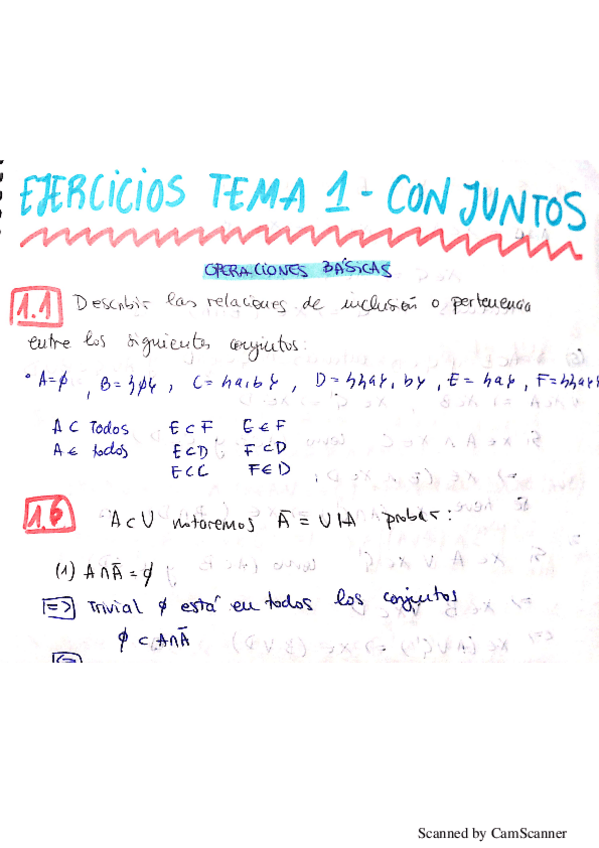 EJERCICIOS TEMA 1 - CONJUNTOS
OPERACIONES BÁSICAS
1.1 Describir las relaciones de inclusión o pertenencia
entre los siguientes conjuntos:
• A=∅, B={∅}, C={a,b}, D={{a},b}, E={a}, F={{a}}
A⊂ Todos E⊂F E∈F
A∈ todos E⊂D F⊂D
E⊂C F∈D
1.6 A⊂U notaremos Ā = U\A probar:
(1) A∩Ā = ∅
=> Trivial ∅ está en todos los conjuntos
∅ ⊂ A∩Ā
Scanned by CamScanner